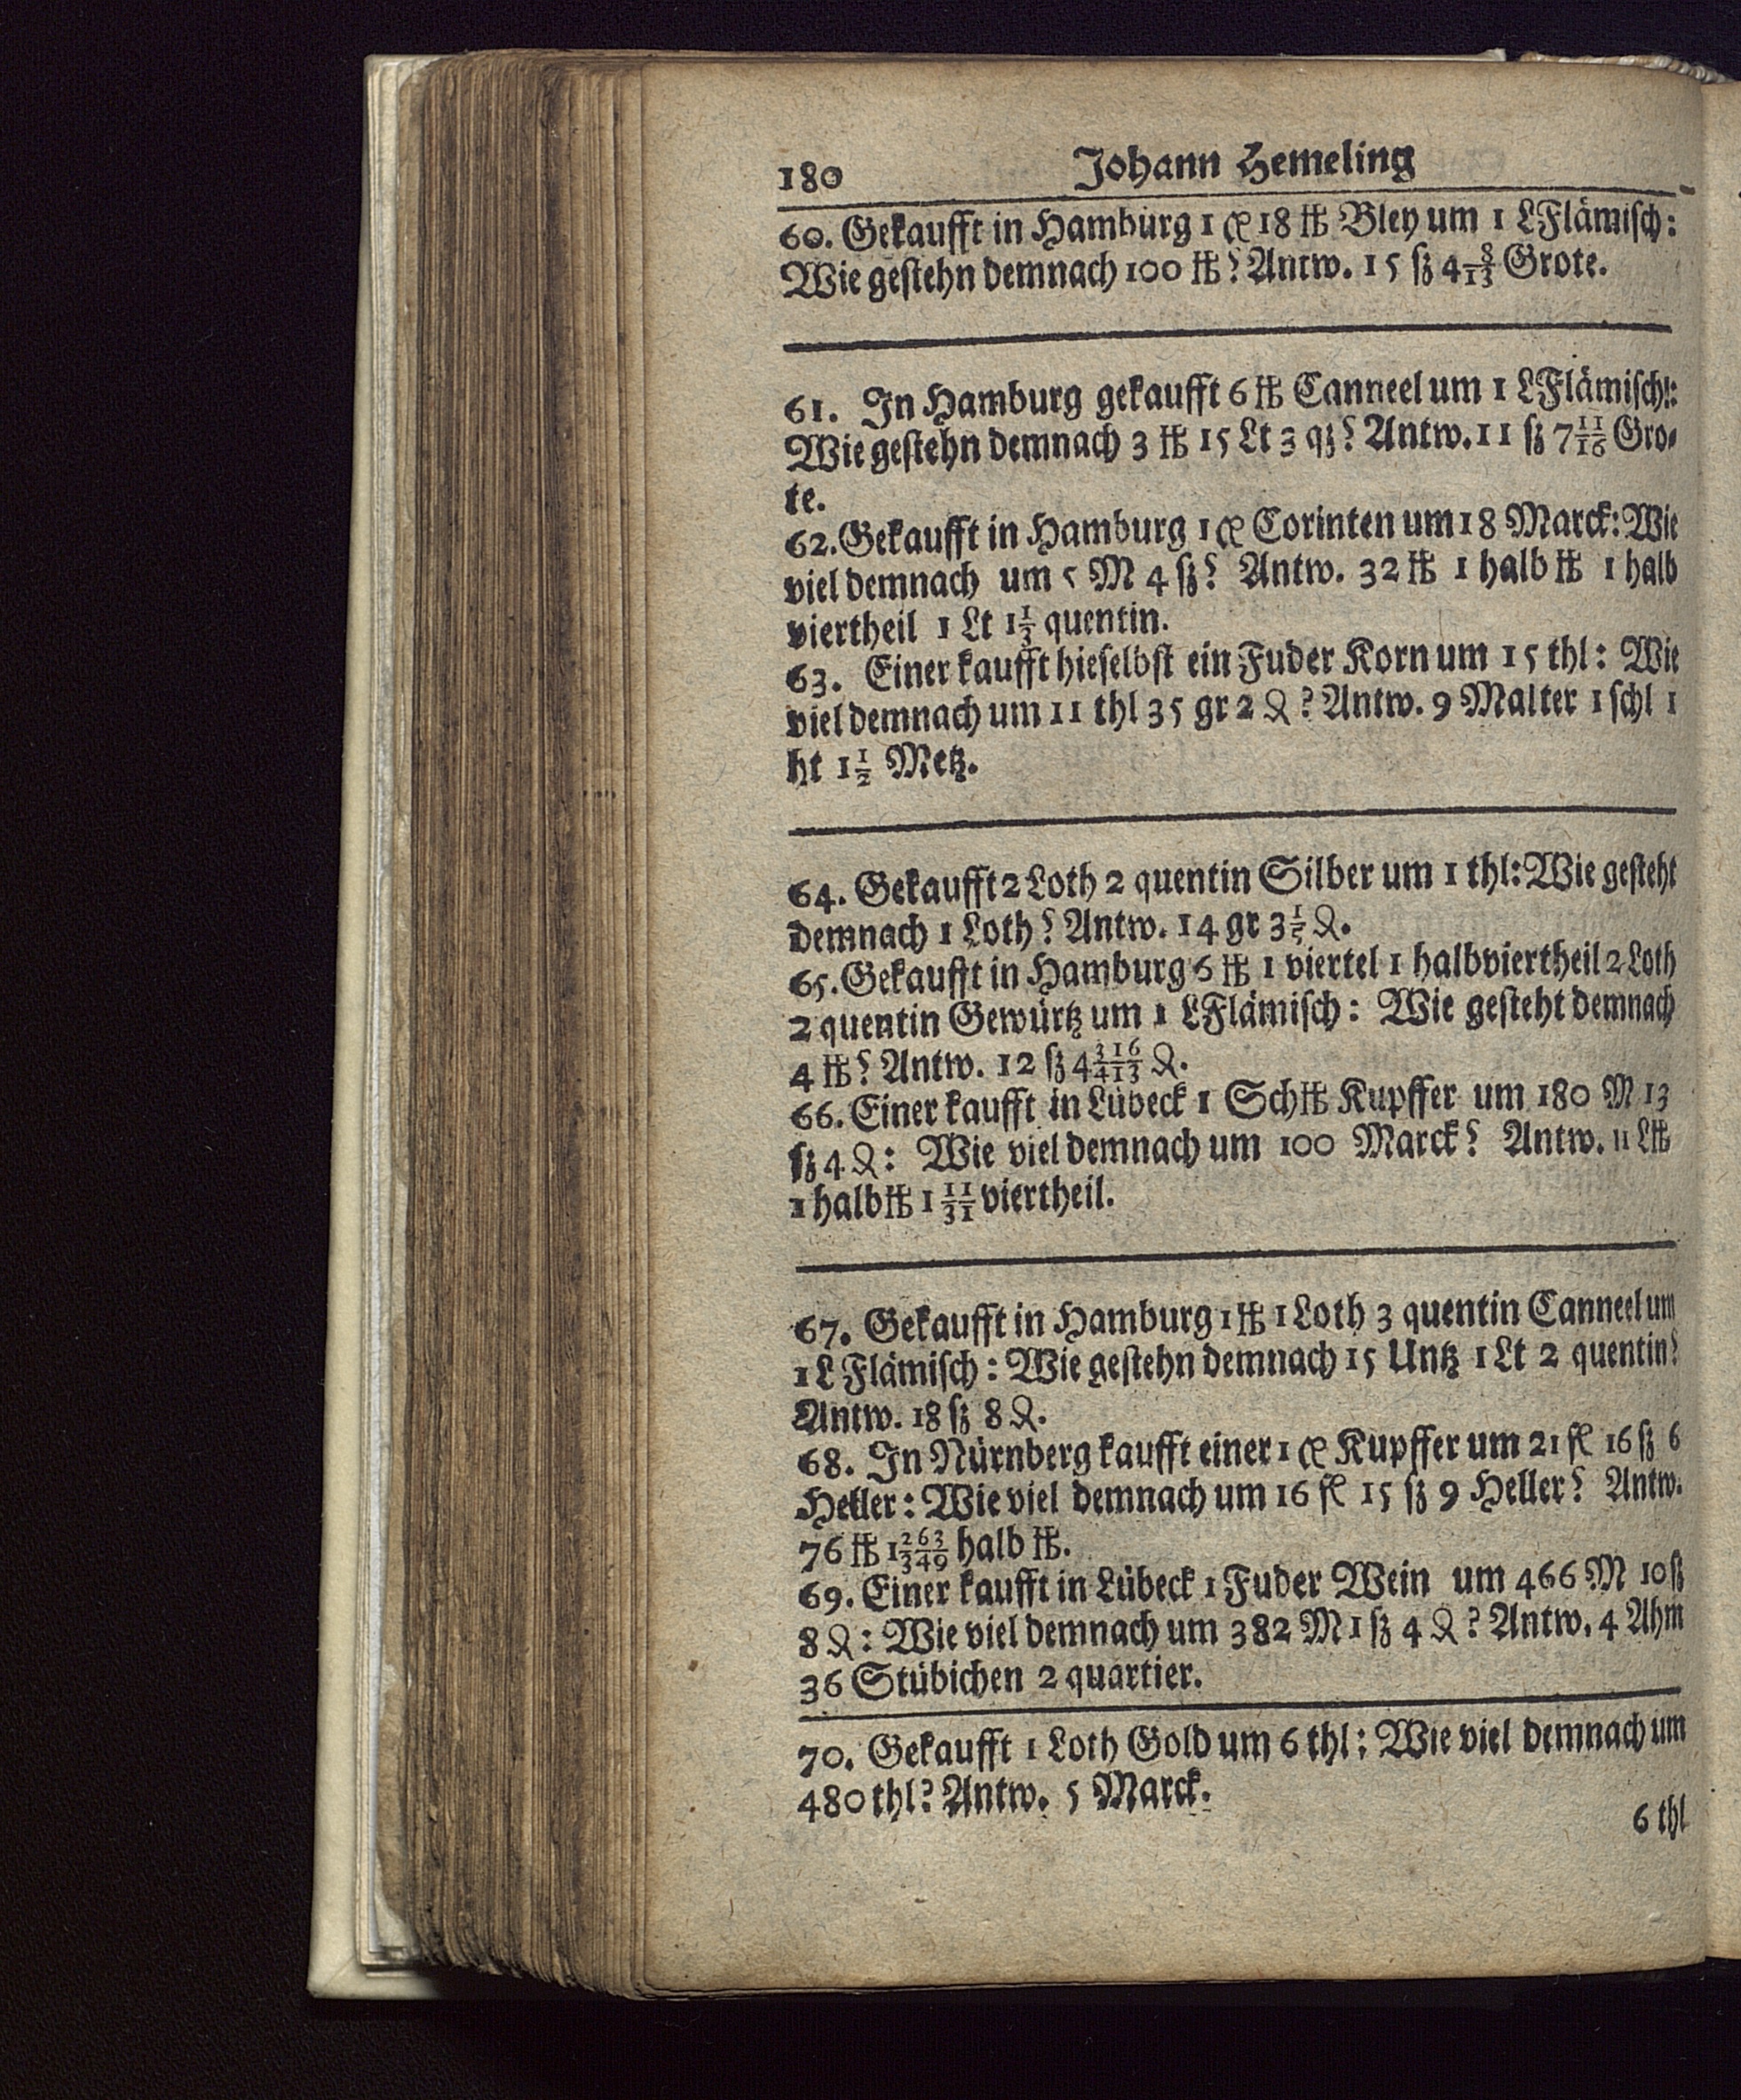 180 Johann Hemeling
60. Gekaufft in Hamburg 1 ℔ 18 ℔ Bley um 1 LFlämisch:
Wie gestehn demnach 100 ℔? Antw. 15 ßz 4 8/13 Grote.
61. In Hamburg gekaufft 6 ℔ Canneel um 1 LFlämisch:
Wie gestehn demnach 3 ℔ 15 Lt 3 qz? Antw. 11 ßz 7 11/16 Gro-
te.
62. Gekaufft in Hamburg 1 Corinten um 18 Marck: Wie
viel demnach um 5 M 4 ßz? Antw. 32 ℔ 1 halb ℔ 1 halb
viertheil 1 Lt 1 1/3 quentin.
63. Einer kaufft hieselbst ein Fuder Korn um 15 thl: Wie
viel demnach um 11 thl 35 gr 2 ₰? Antw. 9 Malter 1 schl 1
ht 1 1/2 Metz.
64. Gekaufft 2 Loth 2 quentin Silber um 1 thl: Wie gesteht
demnach 1 Loth? Antw. 14 gr 3 1/5 ₰.
65. Gekaufft in Hamburg 6 ℔ 1 viertel 1 halbviertheil 2 Loth
2 quentin Gewürtz um 1 LFlämisch: Wie gesteht demnach
4 ℔? Antw. 12 ßz 4 316/413 ₰.
66. Einer kaufft in Lübeck 1 Sch℔ Kupffer um 180 M 13
ßz 4 ₰: Wie viel demnach um 100 Marck? Antw. 11 L℔
1 halb ℔ 1 11/31 viertheil.
67. Gekaufft in Hamburg 1 ℔ 1 Loth 3 quentin Canneel um
1 L Flämisch: Wie gestehn demnach 15 Untz 1 Lt 2 quentin?
Antw. 18 ßz 8 ₰.
68. In Nürnberg kaufft einer 1 Kupffer um 21 fl 16 ßz 6
Heller: Wie viel demnach um 16 fl 15 ßz 9 Heller? Antw.
76 ℔ 1 263/349 halb ℔.
69. Einer kaufft in Lübeck 1 Fuder Wein um 466 M 10 ßz
8 ₰: Wie viel demnach um 382 M 1 ßz 4 ₰? Antw. 4 Ahm
36 Stübichen 2 quartier.
70. Gekaufft 1 Loth Gold um 6 thl: Wie viel demnach um
480 thl? Antw. 5 Marck.
6 thl